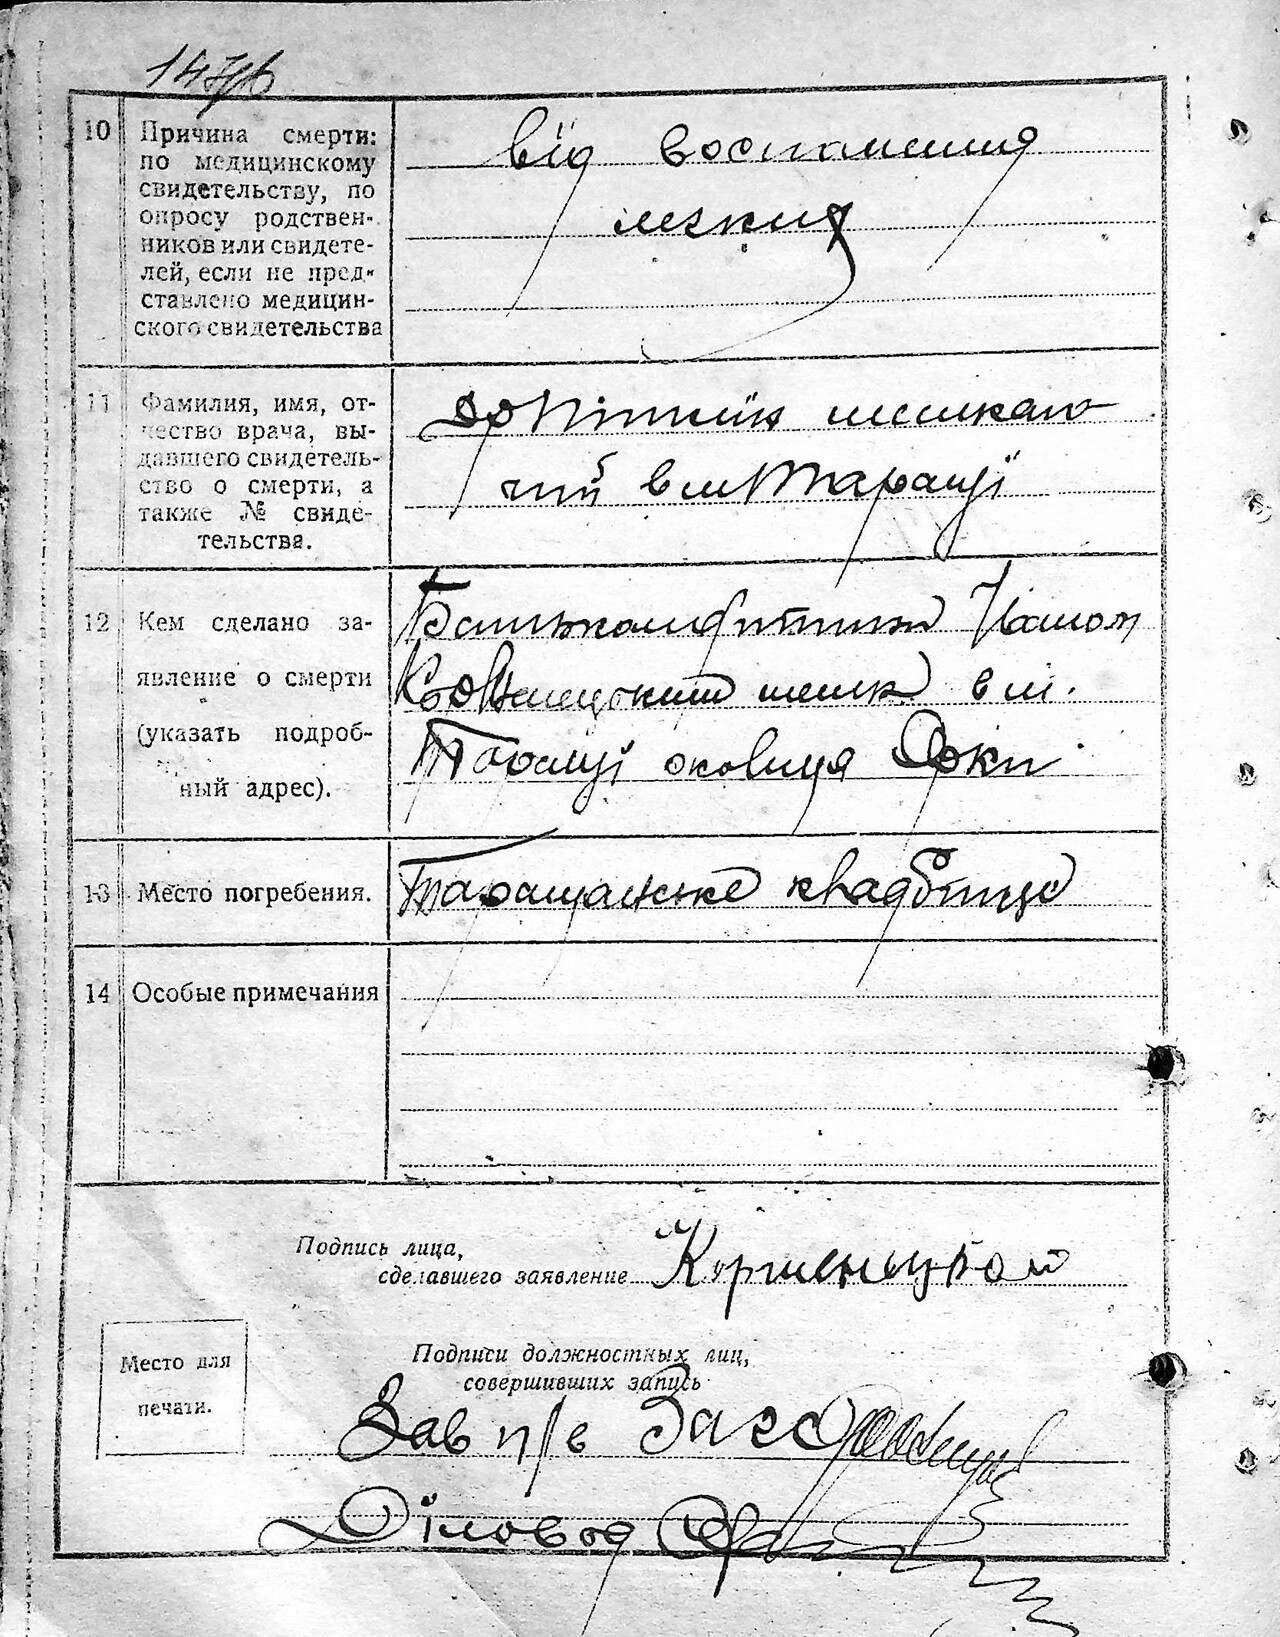 10 Причина смерти:
по медицинскому
свидетельству, по
опросу родствен-
ников или свидете-
лей, если не пред-
ставлено медицин-
ского свидетельства
від воспаления
легких
11 Фамилия, имя, от-
чество врача, вы-
давшего свидетель-
ство о смерти, а
также № свиде-
тельства.
мешкаю
чий в м Таращі
12 Кем сделано за-
явление о смерти
(указать подроб-
ный адрес).
мешк в м.
Таращі околиця
13 Место погребения.
Таращанське кладбище
14 Особые примечания
Подпись лица,
сделавшего заявление
Место для
печати.
Подписи должностных лиц,
совершивших запись
Зав п/в Загс
Діловод